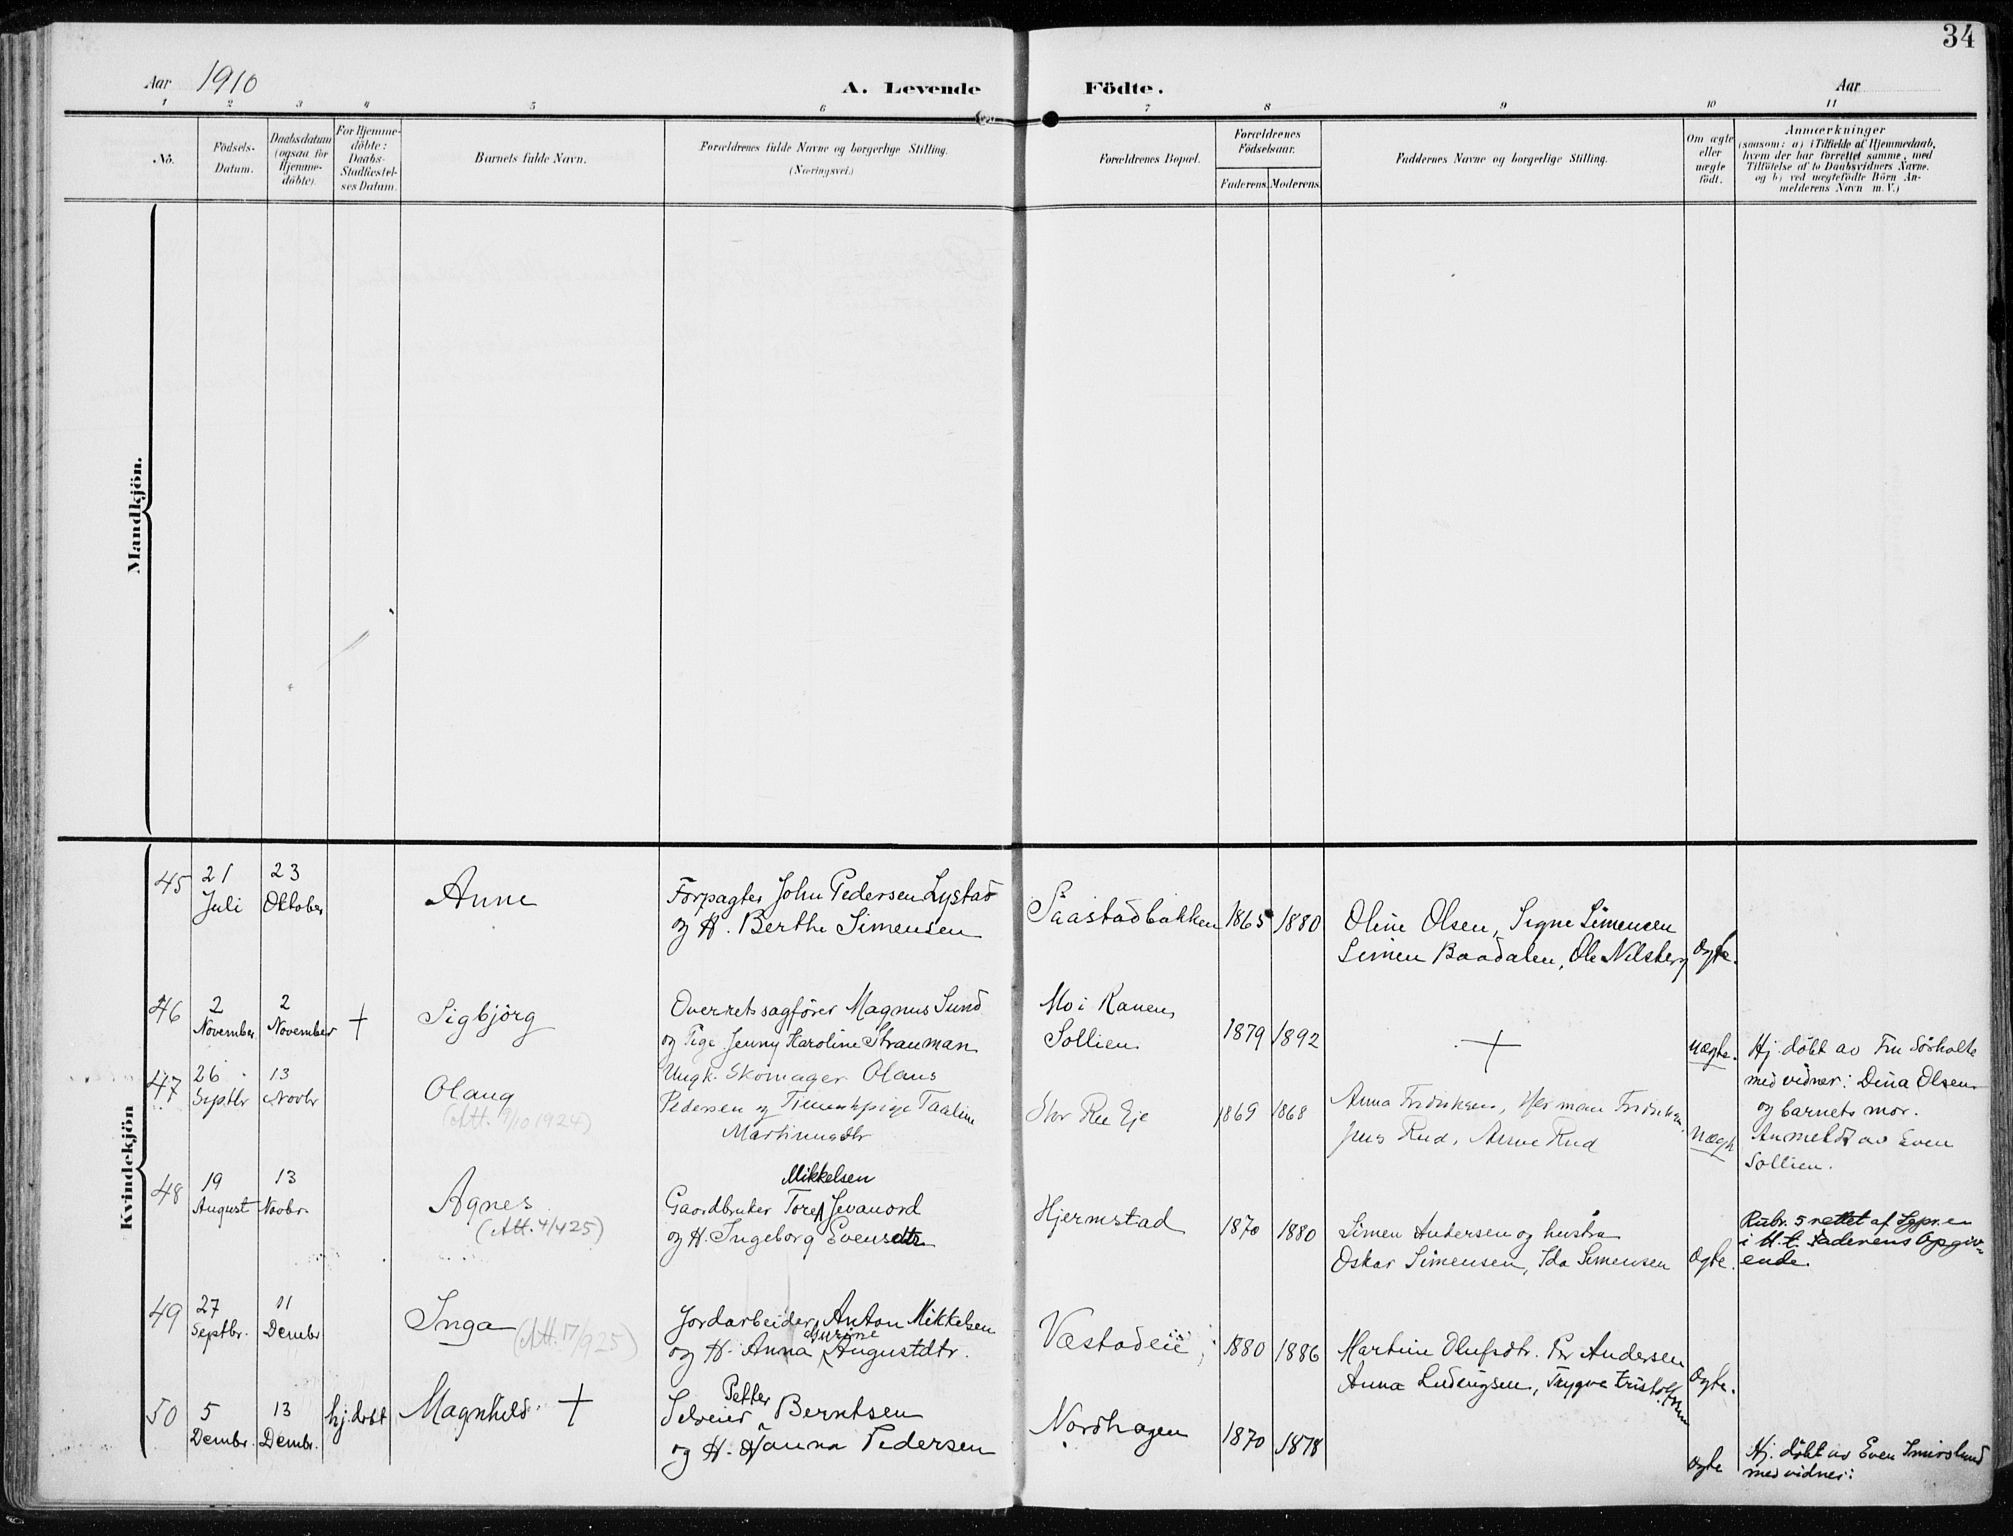 34
Aar 1910
A. Levende Födte.
Aar
1 2 3 4 5 6 7 8 9 10 11
No.
Födsels-
Datum.
Daabsdatum
(ogsaa for
Hjemme-
döbte).
For Hjemme-
döbte:
Daabs-
Stadfæstel-
ses Datum.
Barnets fulde Navn.
Forældrenes fulde Navne og borgerlige Stilling.
(Næringsvei.)
Forældrenes Bopæl.
Forældrenes
Födselsaar.
Faderens. Moderens.
Faddernes Navne og borgerlige Stilling.
Om ægte
eller
uægte
födt.
Anmærkninger
(saasom: a) i Tilfælde af Hjemmedaab,
hvem der har forrettet samme, med
Tilföielse af to Daabsvidners Navne.
og b) ved uægtefödte Börn An-
melderens Navn m. V.)
Mandkjön.
Kvindekjön
45
21
Juli
23
Oktober
Anne
Forpagter John Pedersen Lystad
og H. Berthe Simensen
Saastadbakken
1865
1880
Oline Olsen, Signe Simensen
Simen Baadalen, Ole Nilsberg
Ægte.
46
2
November
2
November
+
Sigbjörg
Overretssagförer Magnus Sund
og Pige Jenny Karoline Strauman
Mo i Ranen,
Sollien
1879
1892
+
Uægte.
Hj. döbt av Fru Sörholte
med vidner: Dina Olsen
og barnets mor.
Anmeldt av Even
Sollien.
47
26
Septbr
13
Novbr
Olaug
(Att. 9/10 1924)
Ungk. Skomager Olaus
Pedersen og Tienestpige Taaline
Martinusdtr
Stor Ree Eje
1869
1868
Anna Fredriksen, Herman Fredriksen,
Jens Rud, Anne Rud
Uægte
48
19
August
13
Novbr.
Agnes
(Att. 4/425)
Mikkelsen
Gaardbruker Tore Jevanord
og H. Ingeborg Evensdtr
Hjermstad
1870
1880
Simen Andersen og hustru
Oskar Simensen, Ida Simensen
Ægte.
Rubr. 5 rettet af Sgpr. en
i H. t. Faderens Opgiv-
ende.
49
27
Septbr.
11
Dembr
Inga
(Att. 17/925)
Jordarbeider Anton Mikkelsen
Gurine
og H. Anna Augustdtr.
Væstadeie
1880
1886
Martine Olufsdtr. Per Andersen
Anna Ludvigsen, Trygve Kristoffersen
Ægte.
50
5
Dembr.
13
Dembr.
hj. döbt
Magnhild +
Petter
Selveier Berntsen
og H. Janna Pedersen
Nordhagen
1870
1878
Ægte
Hj. döbt av Even Smidslund
med vidner: